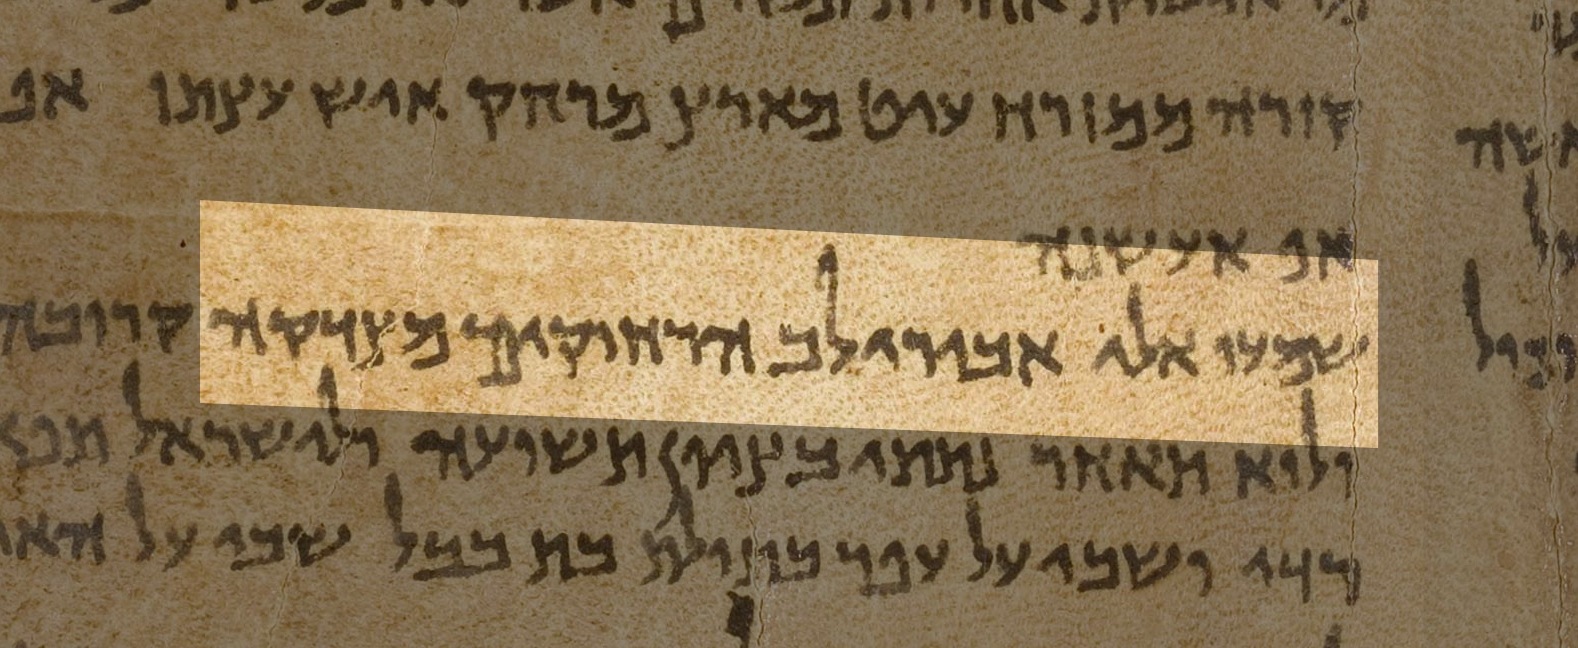 קורה ממזרח עיט מארץ מרחק איש עצתו אפ
אשה
אפ אעשנה
שמעו אלי אבירי לב הרחוקים מצדקה קרובה
ולוא תאחר נתתי בציון תשועה ולישראל תפא
רדי ושבי על עפר בתולת בת בבל שבי על האר